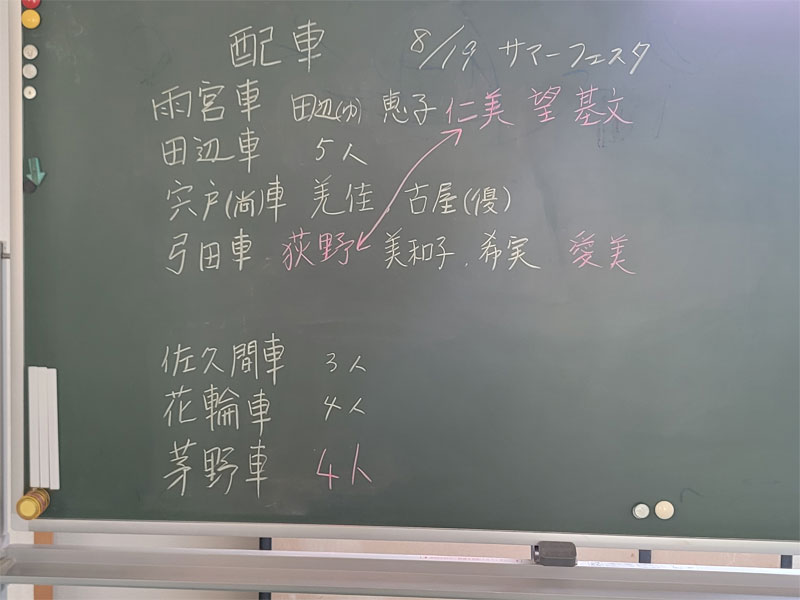 配車 8/19 サマーフェスタ
雨宮車 田辺(ゆ) 恵子 仁美 望 基文
田辺車 5人
宍戸(尚)車 羌佳 古屋(優)
弓田車 荻野 美和子 希実 愛美
佐久間車 3人
花輪車 4人
茅野車 4人